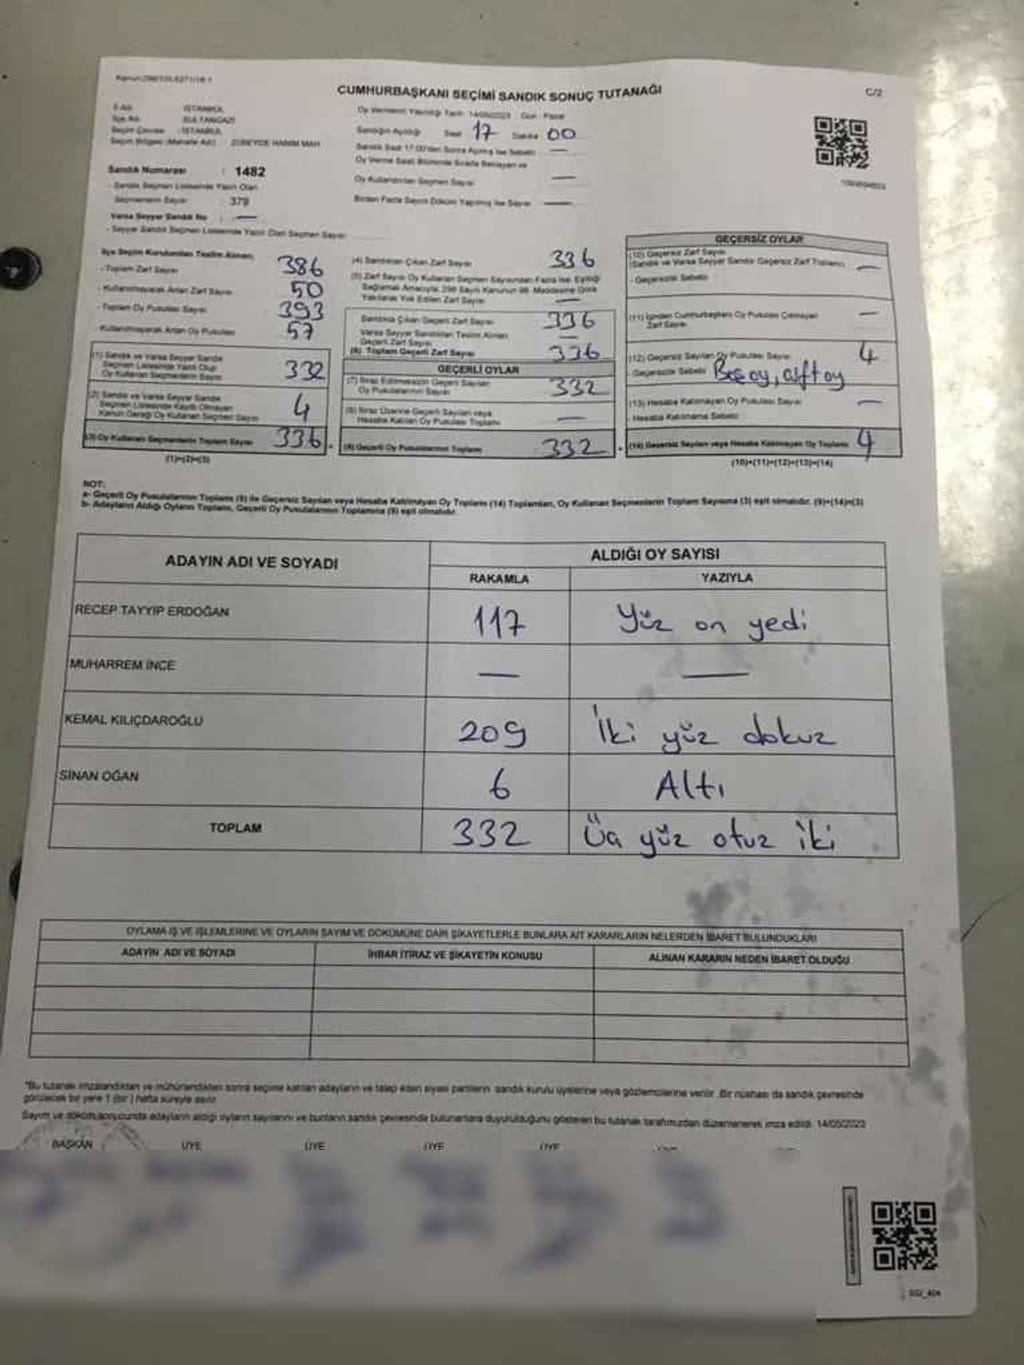 CUMHURBAŞKANI SEÇİMİ SANDIK SONUÇ TUTANAĞI
C/2
İli Adı: İSTANBUL
İlçe Adı: SULTANGAZİ
Seçim Çevresi: İSTANBUL
Seçim Bölgesi (Mahalle Adı): ZÜBEYDE HANIM MAH
Sandık Numarası : 1482
Sandık Seçmen Listesinde Yazılı Olan
Seçmenlerin Sayısı : 379
Varsa Seyyar Sandık No : —
- Seyyar Sandık Seçmen Listesinde Yazılı Olan Seçmen Sayısı
Oy Vermenin Yapıldığı Tarih: 14/05/2023 Gün: Pazar
Sandığın Açıldığı Saat 17 Dakika 00
Sandık Saat 17.00'den Sonra Açılmış İse Sebebi —
Oy Verme Saati Bitiminde Sırada Bekleyen ve
Oy Kullandırılan Seçmen Sayısı —
Birden Fazla Sayım Döküm Yapılmış İse Sayısı —
İlçe Seçim Kurulundan Teslim Alınan;
- Toplam Zarf Sayısı 386
- Kullanılmayarak Artan Zarf Sayısı 50
- Toplam Oy Pusulası Sayısı 393
- Kullanılmayarak Artan Oy Pusulası 57
(1) Sandık ve Varsa Seyyar Sandık
Seçmen Listesinde Yazılı Olup
Oy Kullanan Seçmenlerin Sayısı 332
(2) Sandık ve Varsa Seyyar Sandık
Seçmen Listesinde Kayıtlı Olmayan
Kanun Gereği Oy Kullanan Seçmen Sayısı 4
(3) Oy Kullanan Seçmenlerin Toplam Sayısı 336
(1)+(2)=(3)
(4) Sandıktan Çıkan Zarf Sayısı 336
(5) Zarf Sayısı Oy Kullanan Seçmen Sayısından Fazla İse, Eşitliği
Sağlamak Amacıyla, 298 Sayılı Kanunun 98. Maddesine Göre
Yakılarak Yok Edilen Zarf Sayısı —
Sandıkta Çıkan Geçerli Zarf Sayısı 336
Varsa Seyyar Sandıktan Teslim Alınan
Geçerli Zarf Sayısı —
(6) Toplam Geçerli Zarf Sayısı 336
GEÇERLİ OYLAR
(7) İtiraz Edilmeksizin Geçerli Sayılan
Oy Pusulalarının Sayısı 332
(8) İtiraz Üzerine Geçerli Sayılan veya
Hesaba Katılan Oy Pusulası Toplamı —
(9) Geçerli Oy Pusulalarının Toplamı 332
GEÇERSİZ OYLAR
(10) Geçersiz Zarf Sayısı
(Sandık ve Varsa Seyyar Sandık Geçersiz Zarf Toplamı) —
- Geçersizlik Sebebi:
(11) İçinden Cumhurbaşkanı Oy Pusulası Çıkmayan
Zarf Sayısı —
(12) Geçersiz Sayılan Oy Pusulası Sayısı 4
- Geçersizlik Sebebi Boş oy, çift oy
(13) Hesaba Katılmayan Oy Pusulası Sayısı —
- Hesaba Katılmama Sebebi
(14) Geçersiz Sayılan veya Hesaba Katılmayan Oy Toplamı 4
(10)+(11)+(12)+(13)=(14)
NOT:
a- Geçerli Oy Pusulalarının Toplamı (9) ile Geçersiz Sayılan veya Hesaba Katılmayan Oy Toplamı (14) Toplamları, Oy Kullanan Seçmenlerin Toplam Sayısına (3) eşit olmalıdır. (9)+(14)=(3)
b- Adayların Aldığı Oyların Toplamı, Geçerli Oy Pusulalarının Toplamına (9) eşit olmalıdır.
ADAYIN ADI VE SOYADI ALDIĞI OY SAYISI
RAKAMLA YAZIYLA
RECEP TAYYİP ERDOĞAN 117 Yüz on yedi
MUHARREM İNCE — —
KEMAL KILIÇDAROĞLU 209 İki yüz dokuz
SİNAN OĞAN 6 Altı
TOPLAM 332 Üç yüz otuz iki
OYLAMA İŞ VE İŞLEMLERİNE VE OYLARIN SAYIM VE DÖKÜMÜNE DAİR ŞİKAYETLERLE BUNLARA AİT KARARLARIN NELERDEN İBARET BULUNDUKLARI
ADAYIN ADI VE SOYADI İHBAR İTİRAZ VE ŞİKAYETİN KONUSU ALINAN KARARIN NEDEN İBARET OLDUĞU
"Bu tutanak imzalandıktan ve mühürlendikten sonra seçime katılan adayların ve talep eden siyasi partilerin sandık kurulu üyelerine veya gözlemcilerine verilir. Bir nüshası da sandık çevresinde
görülecek bir yere 1 (bir) hafta süreyle asılır.
Sayım ve döküm sonucunda adayların aldığı oyların sayılarını ve bunların sandık çevresinde bulunanlara duyurulduğunu gösteren bu tutanak tarafımızdan düzenlenerek imza edildi. 14/05/2023
BAŞKAN ÜYE ÜYE ÜYE ÜYE